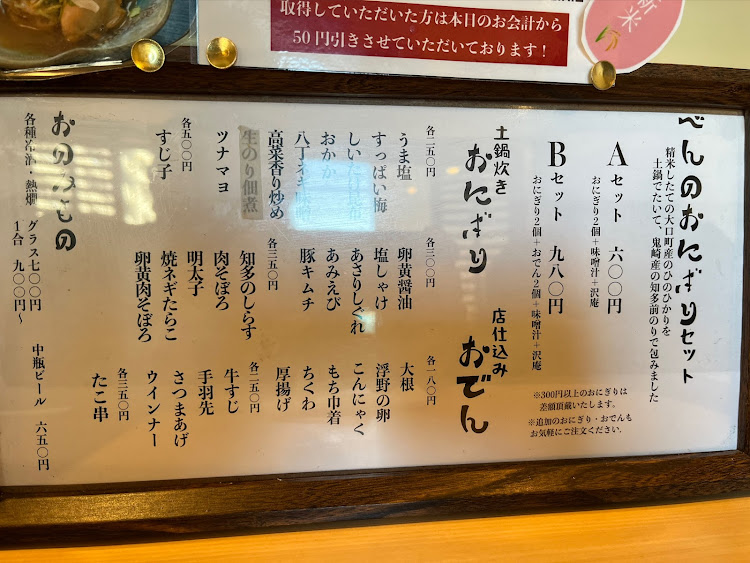 取得していただいた方は本日のお会計から
50円引きさせていただいております！
新米
べんのおにぎりセット
精米したての大口町産のひのひかりを
土鍋でたいて、鬼崎産の知多前のりで包みました
Aセット 六〇〇円
おにぎり2個＋味噌汁＋沢庵
Bセット 九八〇円
おにぎり2個＋おでん2個＋味噌汁＋沢庵
※300円以上のおにぎりは
差額頂戴いたします。
※追加のおにぎり・おでんも
お気軽にご注文ください。
土鍋炊き
おにぎり
各二五〇円
うま塩
すっぱい梅
しいたけ昆布
おかか
八丁ネギ味噌
高菜香り炒め
生のり佃煮
ツナマヨ
各三〇〇円
卵黄醤油
塩しゃけ
あさりしぐれ
あみえび
豚キムチ
各三五〇円
知多のしらす
肉そぼろ
明太子
焼ネギたらこ
卵黄肉そぼろ
各五〇〇円
すじ子
店仕込み
おでん
各一八〇円
大根
浮野の卵
こんにゃく
もち巾着
ちくわ
厚揚げ
各二五〇円
牛すじ
手羽先
さつまあげ
ウインナー
各三五〇円
たこ串
おのみもの
各種冷酒・熱燗 グラス七〇〇円
1合 九〇〇円〜
中瓶ビール 六五〇円